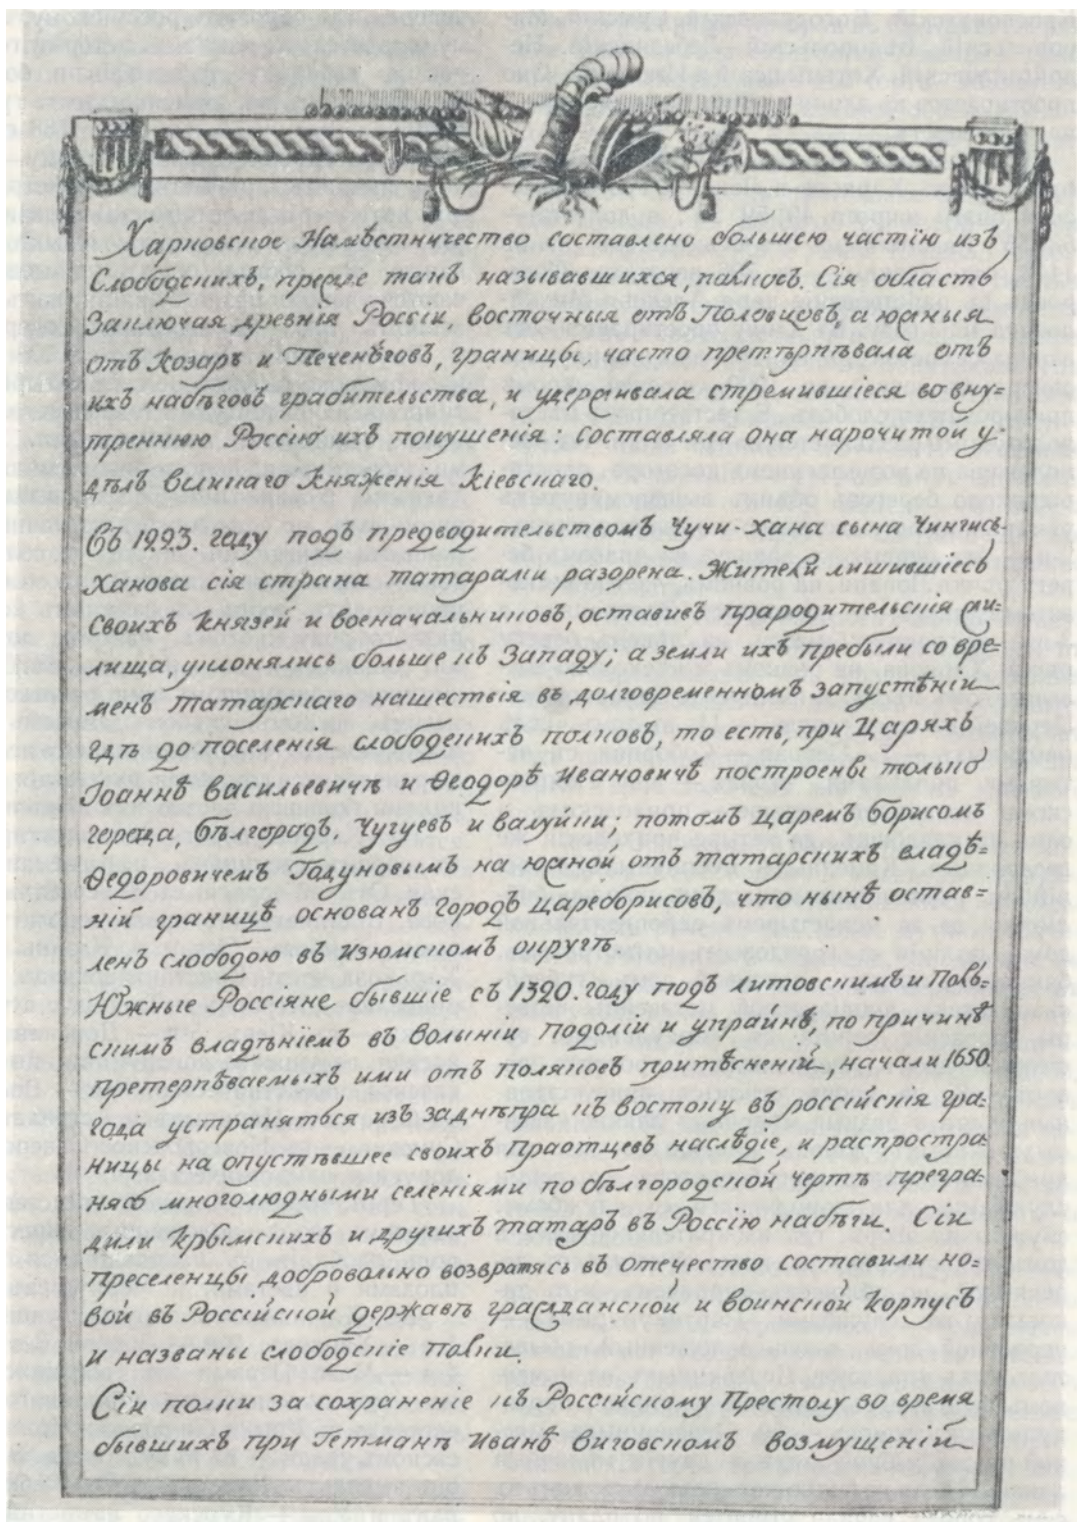 Харковское Намѣстничество составлено большею частїю изъ
Слободскихъ, прежде такъ называвшихся, полковъ. Сія область
Заключая древнія Россіи, восточныя отъ Половцовъ, а южныя
отъ Козаръ и Печенѣговъ, границы, часто претѣрпѣвала отъ
ихъ набѣговъ грабительства, и удерживала стремившіеся во вну=
треннюю Россію ихъ покушенія: составляла она нарочитой у-
дѣлъ великаго Княженія Кіевскаго.
Въ 1223. году подъ предводительствомъ Чучи-Хана сына Чингисъ-
Ханова сія страна татарами разорена. Жители лишившіесь
своихъ Князей и военачальниковъ, оставивъ прародительскія жи=
лища, уклонялись больше къ Западу; а земли ихъ пребыли со вре=
менъ татарскаго нашествія въ долговременномъ запустѣніи
гдѣ до поселенія слободскихъ полковъ, то есть, при Царяхъ
Іоаннѣ Васильевичѣ и Ѳеодорѣ Ивановичѣ построены только
города, Бѣлгородъ, Чугуевъ и Валуйки; потомъ царемъ Борисомъ
Ѳедоровичемъ Годуновымъ на южной отъ татарскихъ владѣ=
ній границѣ основанъ городъ Царебо­рисовъ, что нынѣ остав=
ленъ слободою въ Изюмскомъ округѣ.
Южные Россіяне бывшіе съ 1320. году подъ литовскимъ и Поль=
скимъ владѣніемъ въ Волыніи Подоліи и украйнѣ, по причинѣ
претерпѣваемыхъ ими отъ поляковъ притѣсненій, начали 1650.
года устраняться изъ заднѣпра къ востоку въ россійскія гра=
ницы на опустѣвшее своихъ Праотцевъ наслѣдіе, и распростра=
нясь многолюдными селеніями по бѣлгородской чертѣ прегра=
дили Крымскихъ и другихъ татаръ въ Россію набѣги. Сіи
преселенцы добровольно возвратясь въ отечество составили но=
вой въ Россійской державѣ гражданской и воинской Корпусъ
и названы слободскіе полки.
Сіи полки за сохраненіе къ Россійскому Престолу во время
бывшихъ при Гетманѣ Иванѣ Виговскомъ возмущеній